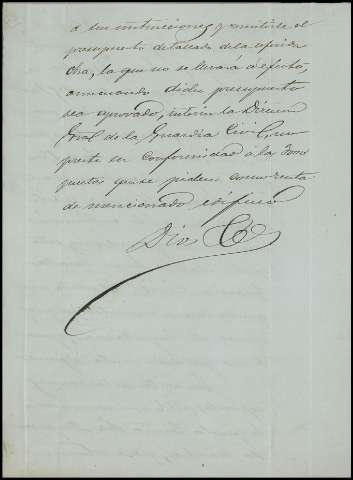 a sus instrucciones y remitirle el
presupuesto detallado de la referida
obra, la que no se llevará a efecto,
aun cuando dicho presupuesto
sea aprobado, interin la Direccion
Gral de la Guardia Civil no
preste su conformidad á las
que se piden
de mencionado edificio
Dios &